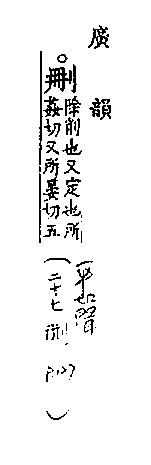 廣韻
○刪
除削也又定也所
姦切又所晏切五
(二十七刪 P.127)